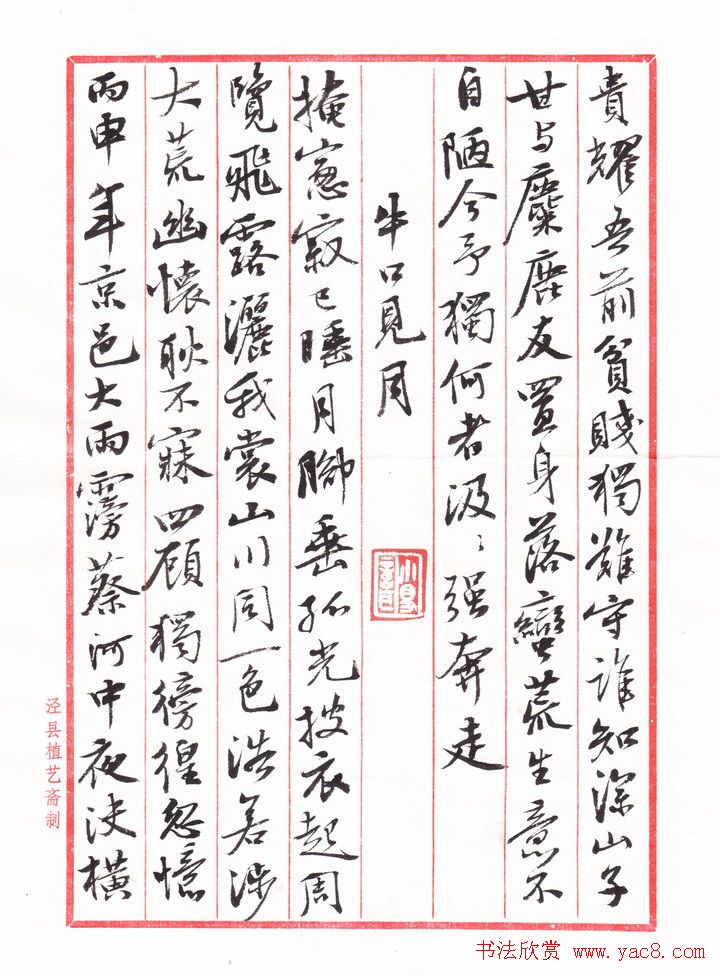 貴耀吾前貧賤獨難守谁知深山子
甘与麋鹿友置身落蠻荒生意不
自陋今予獨何者汲〻强奔走
牛口見月
掩窻寂已睡月脚垂孤光披衣起周
覽飛露灑我裳山川同一色浩若涉
大荒幽懷耿不寐四顧獨徬徨忽憶
丙申年京邑大雨霶蔡河中夜決橫
泾县植艺斋制
书法欣赏 www.yac8.com